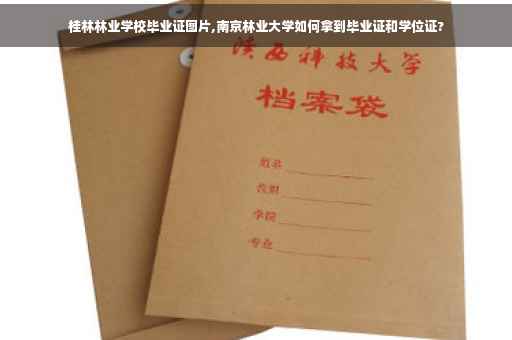 桂林林业学校毕业证图片,南京林业大学如何拿到毕业证和学位证?
陕西科技大学
档案袋
姓名
学院
专业